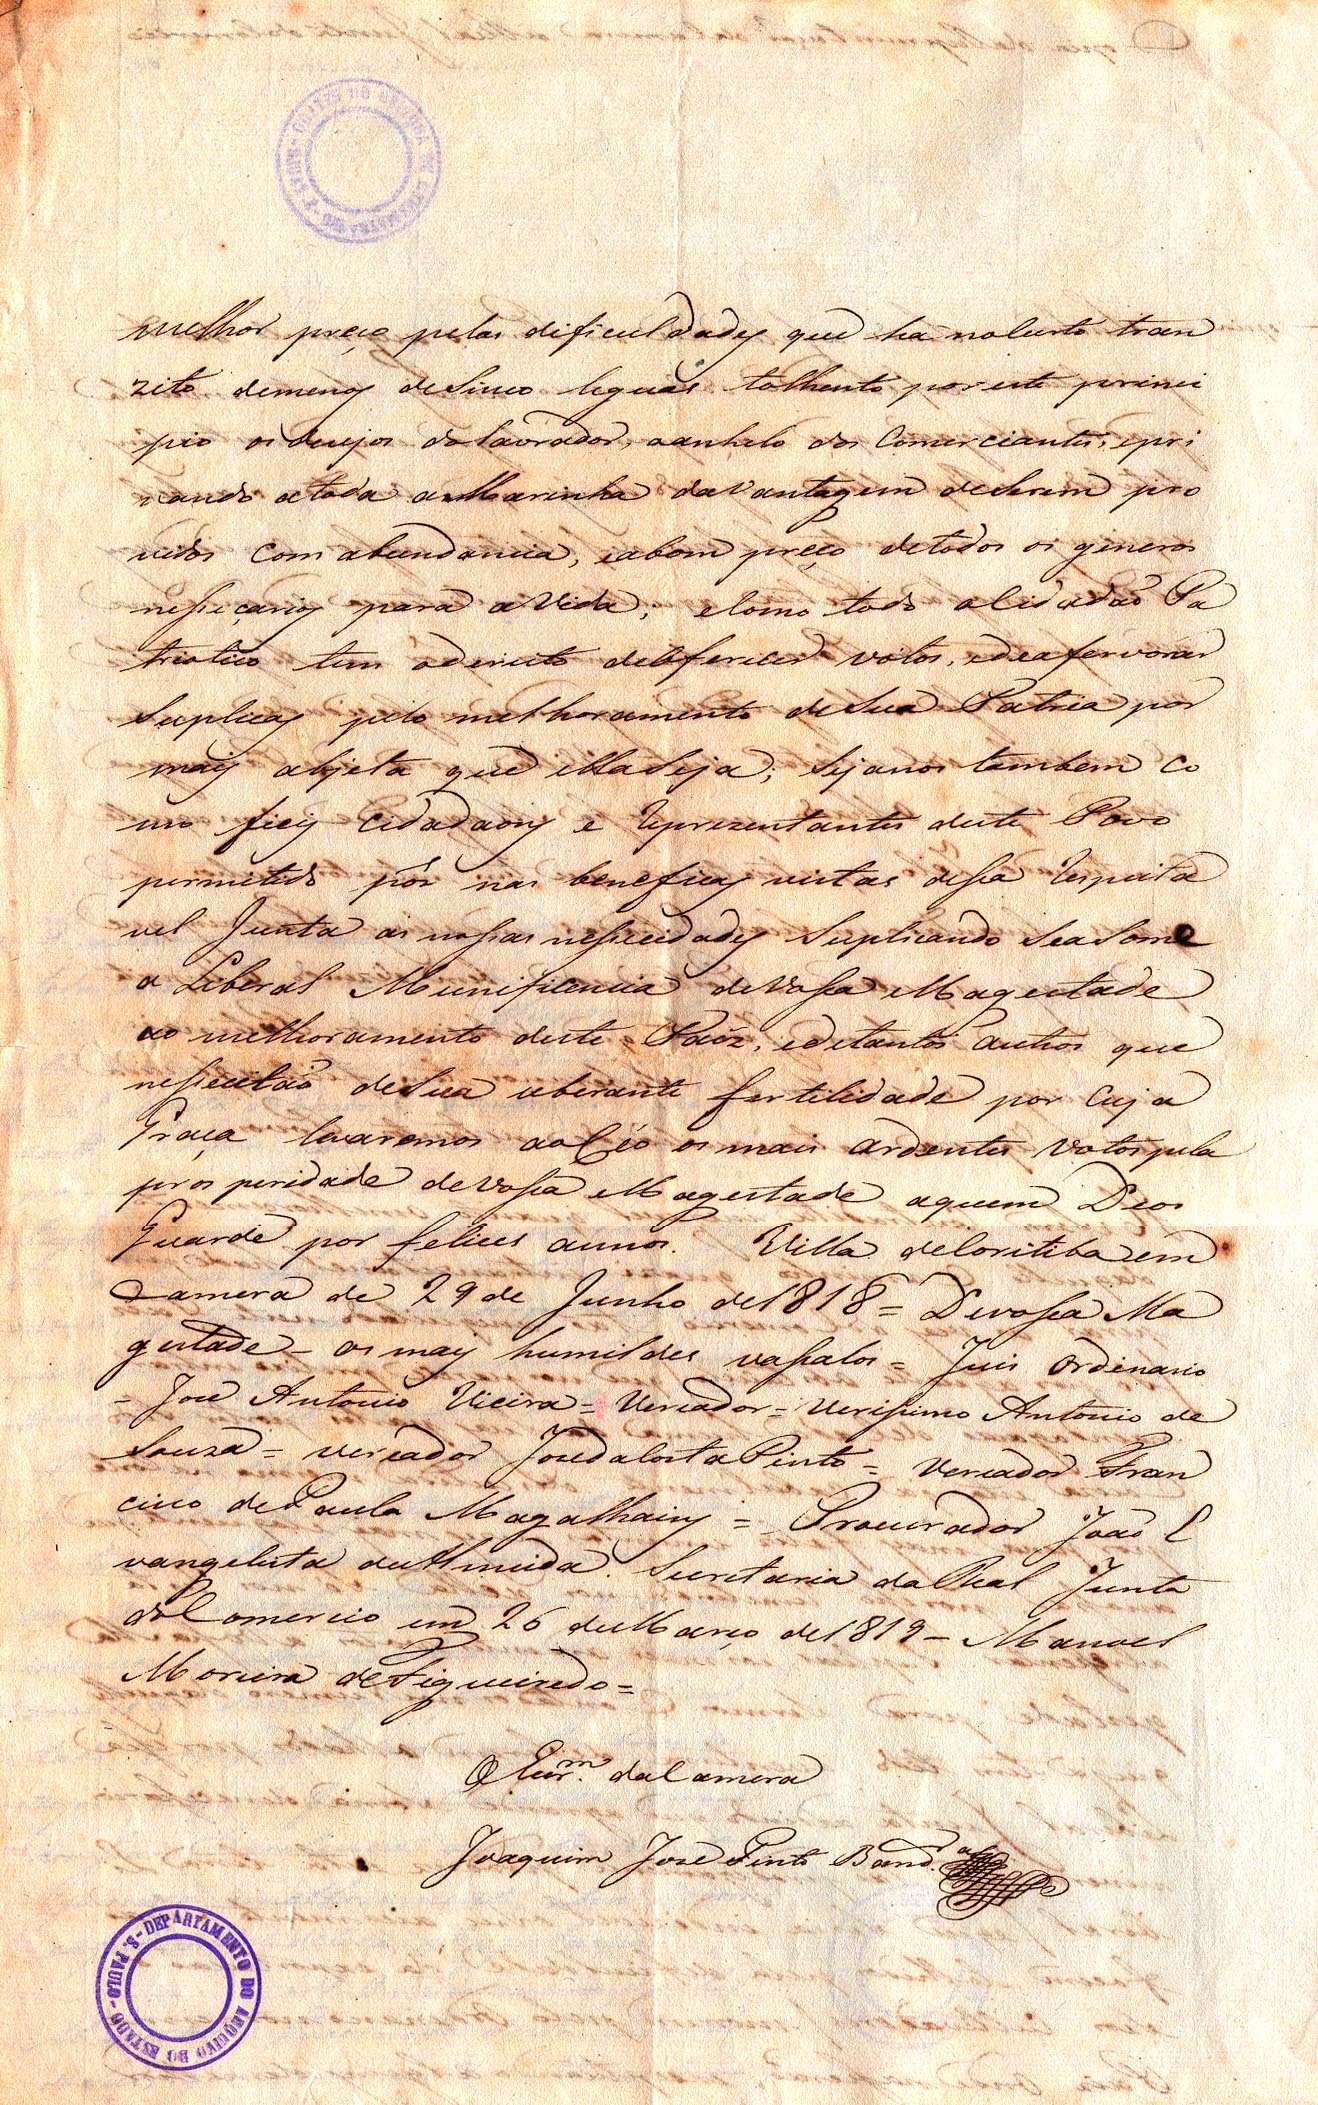 melhor preço pelas dificuldades que ha no curto tran
zito de menos de Sinco leguas tolhento por este princi
pio os dezejos do lavrador, o anhelo dos Comerciantes, e pri
vando a toda a Marinha da vantagem de Serem pro
vidos com abundancia, e a bom preço de todos os generos
nesseçarios para a Vida; e Como todo o Cidadaõ Pa
triotico tem o dereito de ofericer votos, e de afervorar
Suplicas pelo melhoramento de Sua Patria por
mais abjeta que ella Seja; Seja nos tambem Co
mo fieis Cidadaons e Reprezentantes deste Povo
permitido pôr nas beneficas vistas dessa Respeita
vel Junta as nossas nessecidades Suplicando Sea Some
a Liberal Munificencia de Vossa Magestade
ao melhoramento deste Paiz, e de tantos outros que
nessecitaõ de Sua uberante fertilidade por Cuja
Graça levaremos ao Céo os mais ardentes Votos pela
prosperidade de Vossa Magestade a quem Deos
Guarde por felices annos. Villa de Coritiba em
Camera de 29 de Junho de 1818 = De vossa Ma
gestade - os mais humildes vassalos = Juis Ordenario
- José Antonio Vieira = Vereador = Verissimo Antonio de
Souza = vereador José da Costa Pinto = Vereador Fran
cisco de Paula Magalhains = Procurador João E
vangelista de Almeida. Secretaria da Real Junta
do Comercio em 26 de Março de 1819 - Manoel
Moreira de Figueiredo =
O Escr.m da Camera
Joaquim José Pinto Band.ra
DEPARTAMENTO DO ARQUIVO DO ESTADO - S. PAULO -